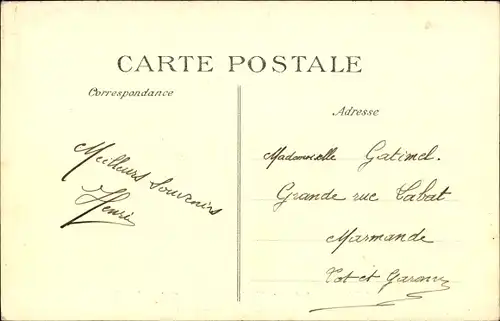 CARTE POSTALE
Correspondance
Meilleurs Souvenirs
Henri
Adresse
Mademoiselle Gatimel.
Grande rue Labat
Marmande
Lot et Garonne